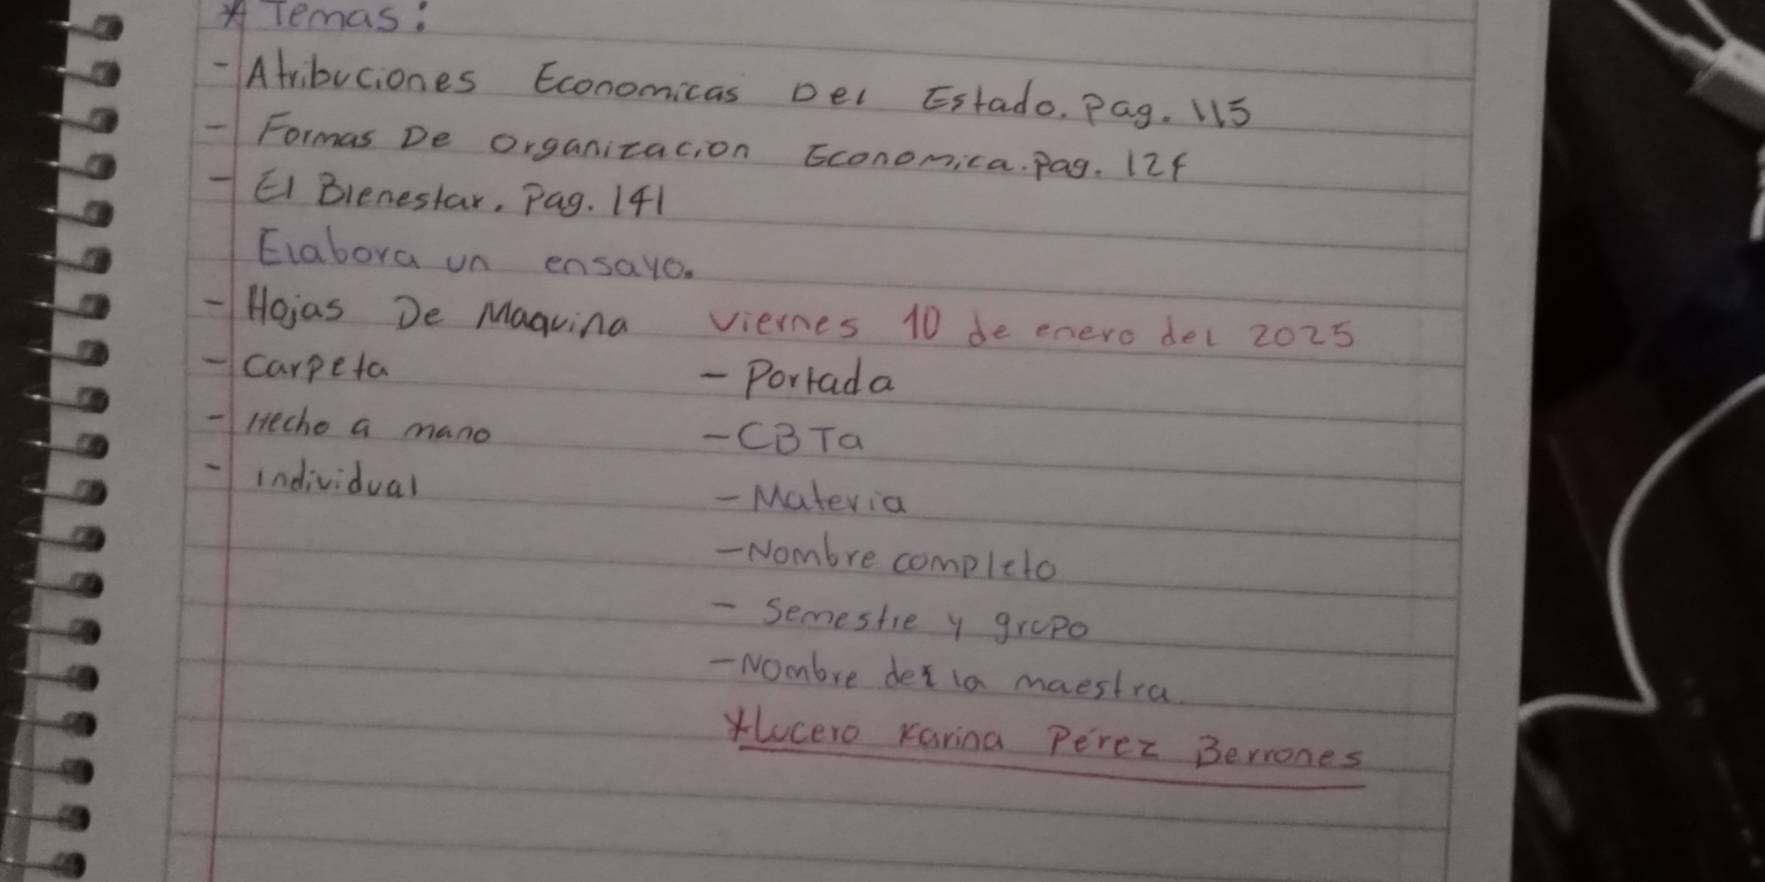 * Temas:
- Atribuciones Economicas Del Estado. Pag. 115
- Formas De Organizacion Economica. Pag. 124
- El Bienestar. Pag. 141
Elabora un ensayo.
- Hojas De Maquina viernes 10 de enero del 2025
- carpeta - Portada
- Hecho a mano - CBTa
- individual - Materia
- Nombre completo
- Semestre y grupo
- Nombre de la maestra
* Lucero Karina Pérez Berrones